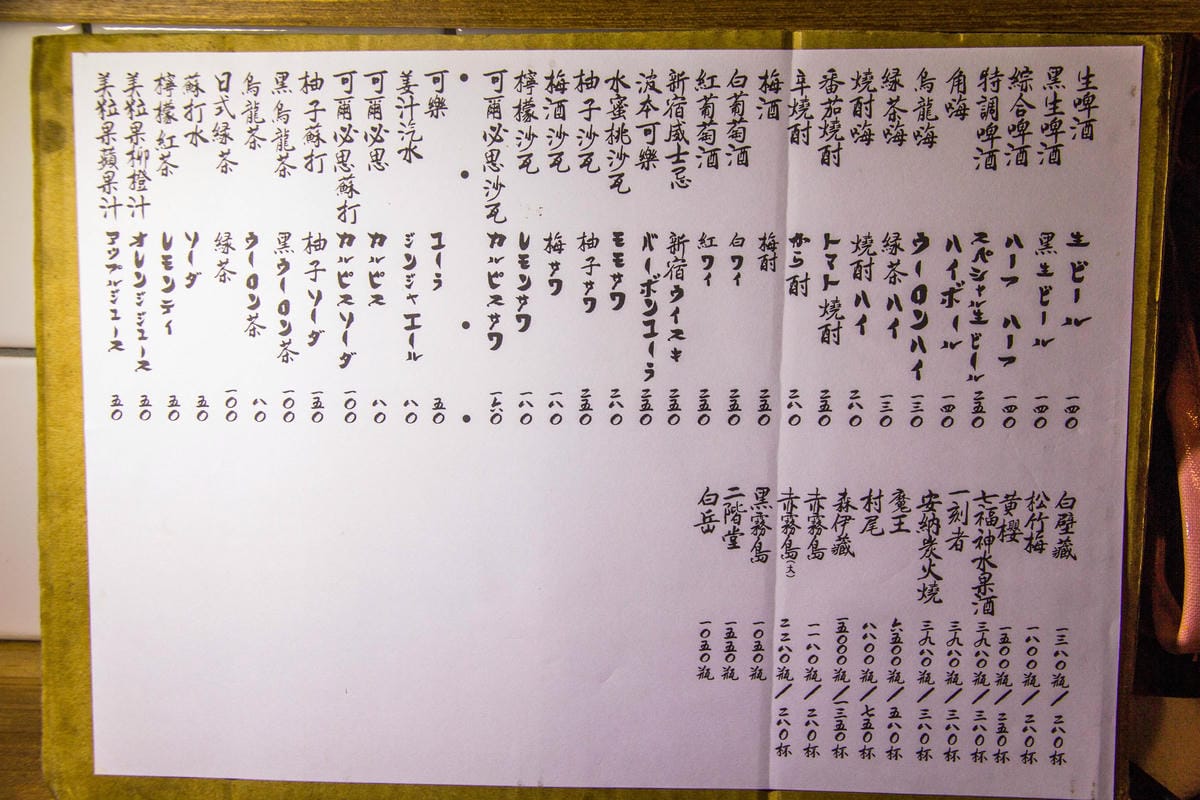 生啤酒 生ビール 一四〇
黑生啤酒 黒生ビール 一四〇
綜合啤酒 ハーフ ハーフ 一四〇
特調啤酒 スペシャル生ビール 二五〇
角嗨 ハイボール 一四〇
烏龍嗨 ウーロンハイ 一三〇
綠茶嗨 緑茶ハイ 一三〇
燒酎嗨 燒酎ハイ 二八〇
番茄燒酎 トマト燒酎 二五〇
辛燒酎 から酎 二八〇
梅酒 梅酎 二五〇
白葡萄酒 白ワイ 二五〇
紅葡萄酒 紅ワイ 二五〇
新宿威士忌 新宿ウイスキ 二五〇
波本可樂 バーボンコーラ 二五〇
水蜜桃沙瓦 モモサワ 二八〇
柚子沙瓦 柚子サワ 二五〇
梅酒沙瓦 梅サワ 一八〇
檸檬沙瓦 レモンサワ 一八〇
可爾必思沙瓦 カルピスサワ 一六〇
• • • •
可樂 コーラ 五〇
姜汁汽水 ジンジャエール 八〇
可爾必思 カルピス 八〇
可爾必思蘇打 カルピスソーダ 一〇〇
柚子蘇打 柚子ソーダ 五〇
黑烏龍茶 黒ウーロン茶 一〇〇
烏龍茶 ウーロン茶 八〇
日式綠茶 緑茶 一〇〇
蘇打水 ソーダ 五〇
檸檬紅茶 レモンティ 五〇
美粒果柳橙汁 オレンジジュース 五〇
美粒果蘋果汁 アップルジュース 五〇
白壁藏 一三八〇瓶/二八〇杯
松竹梅 一八〇〇瓶/二八〇杯
黃櫻 一五〇〇瓶/二五〇杯
七福神水果酒 三九八〇瓶/三八〇杯
一刻者 三九八〇瓶/三八〇杯
安納炭火燒 三九八〇瓶/三八〇杯
魔王 六五〇〇瓶/五八〇杯
村尾 八八〇〇瓶/七五〇杯
森伊藏 一五〇〇〇瓶/一三五〇杯
赤霧島 一一八〇瓶/二八〇杯
赤霧島(大) 二二八〇瓶/二八〇杯
黑霧島 一〇五〇瓶
二階堂 一五五〇瓶
白岳 一〇五〇瓶